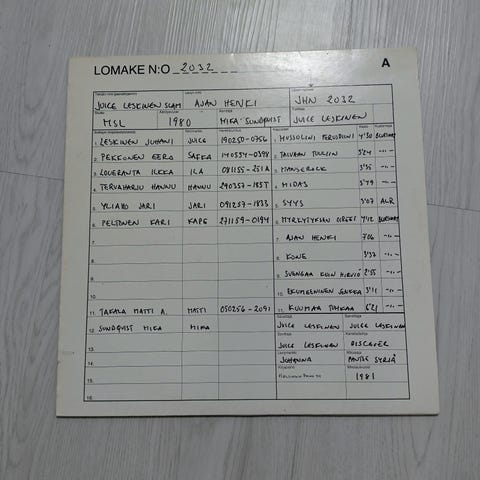 LOMAKE N:O 2032 A
JUICE LESKINEN SLAM AJAN HENKI JHN 2032
MSL 1980 MIKA SUNDQVIST JUICE LESKINEN
1. LESKINEN JUHANI JUICE 190250-0756 1. MUSSOLINI PERUSTUNI 4'30
2. PEKKONEN EERO SAFKA 140554-0398 2. TAIVAAN TULIIN 5'24 -"-
3. LOUERANTA ILKKA ILA 081155-251A 3. MANSEROCK 3'35 -"-
4. TERVAHARJU HANNU HANNU 290357-185T 4. MIDAS 3'79 -"-
5. YLIAHO JARI JARI 091257-1833 5. SYYS 3'07 ALR
6. PELTONEN KARI KAPE 271159-0194 6. MYRKYTYKSEN OIREET 4'12
7. 7. AJAN HENKI 7'06 -"-
8. 8. KONE 3'37 -"-
9. 9. SVENGAA KUIN HIRVIÖ 2'55 -"-
10. 10. EKUMEENINEN JENKKA 3'11 -"-
11. TAKALA MATTI A. MATTI 050256-2091 11. KUUMAA TUHKAA 6'21 -"-
12. SUNDQVIST MIKA MIKA JUICE LESKINEN JUICE LESKINEN
13. JUICE LESKINEN DISCOVER
14. JOHANNA PANTSE SYRJÄ
15. 1981
16.